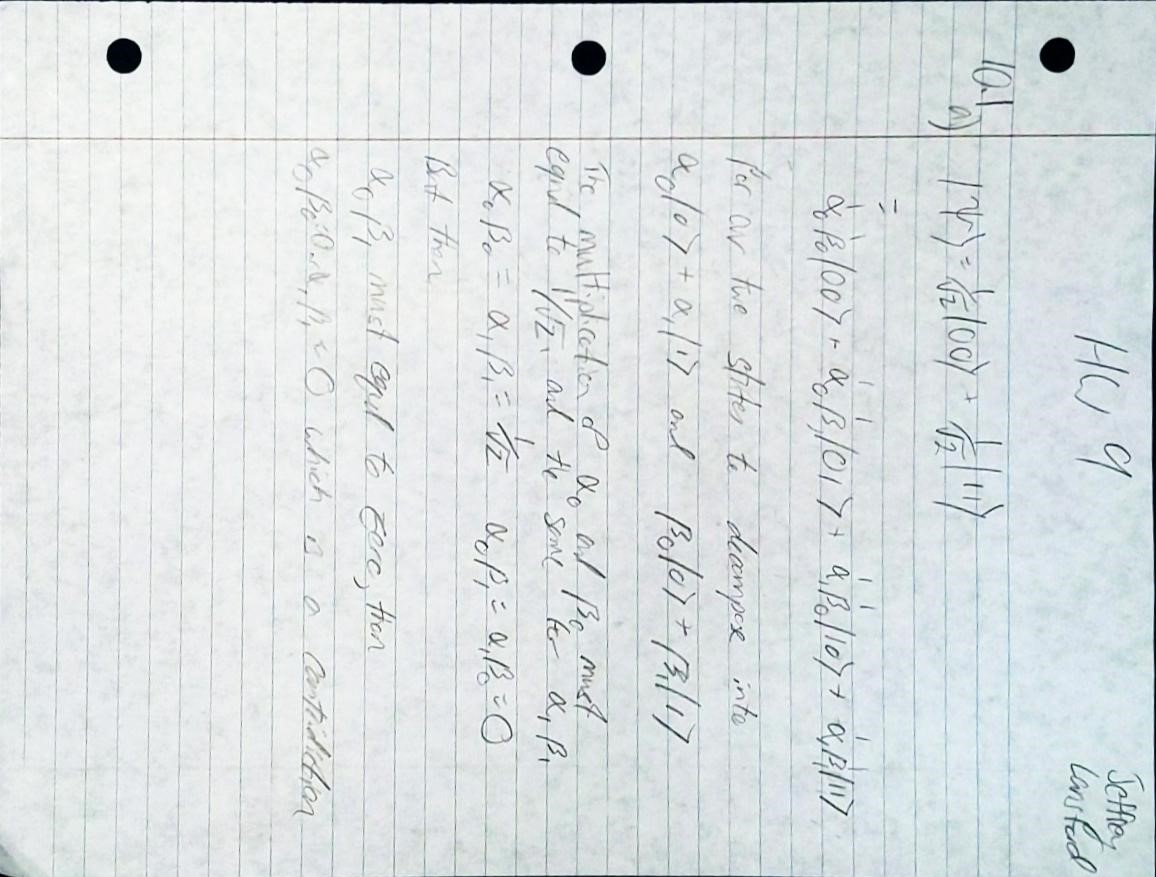 HW 9
10.1
a) |ψ⟩ = 1/√2 |00⟩ + 1/√2 |11⟩
=
α₀β₀|00⟩ + α₀β₁|01⟩ + α₁β₀|10⟩ + α₁β₁|11⟩
For our two states to decompose into
α₀|0⟩ + α₁|1⟩ and β₀|0⟩ + β₁|1⟩
The multiplication of α₀ and β₀ must
equal to 1/√2, and the same for α₁β₁
α₀β₀ = α₁β₁ = 1/√2 α₀β₁ = α₁β₀ = 0
But then
α₀β₁ must equal to zero, then
α₀β₀ α₁β₁ = 0 which is a contridiction